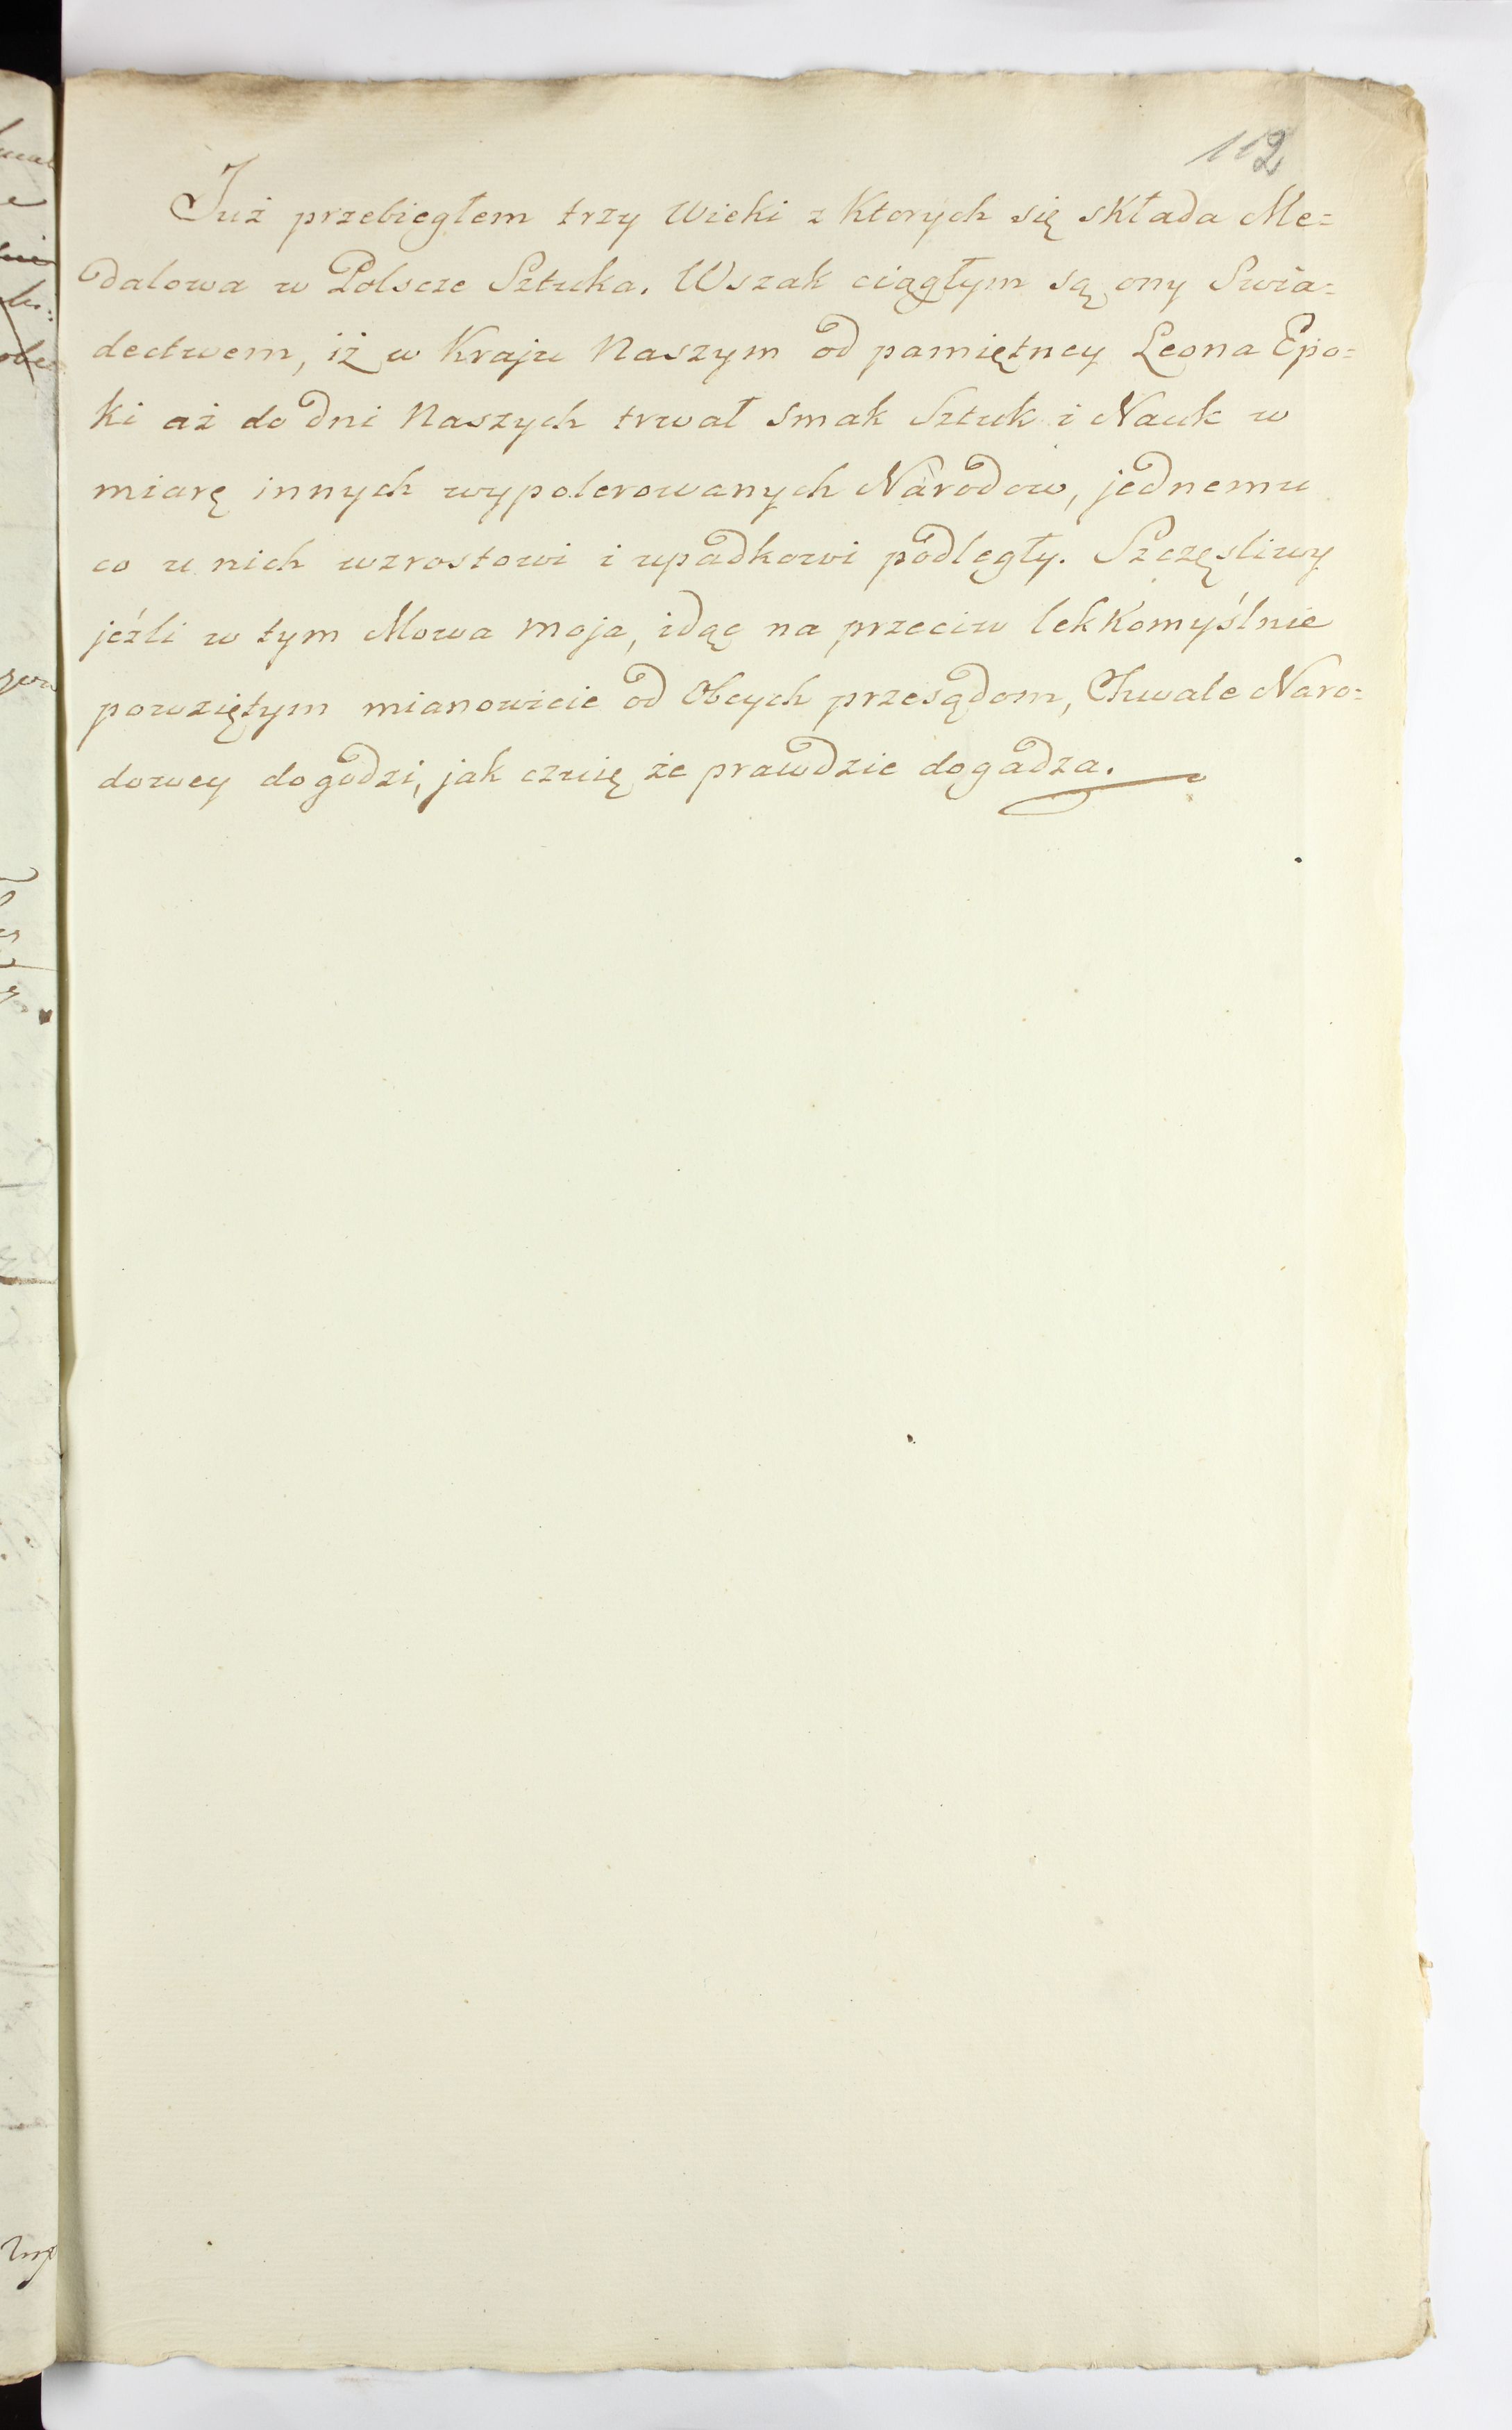 112
Już przebiegłem trzy Wieki z Ktorych się składa Me=
dalowa w Polscze Sztuka. Wszak ciągłym są ony Swia=
dectwem, iż w Kraju Naszym od pamiętney Leona Epo=
ki aż do dni Naszych trwał smak Sztuk i Nauk w
miarę innych wypolerowanych Narodow, jednemu
co u nich wzrostowi i upadkowi podległy. Szczęsliwy
jeźli w tym Mowa moja, idąc na przeciw lekkomyślnie
powziętym mianowicie od Obcych przesądom, Chwale Naro=
dowey dogodzi, jak czuię że prawdzie dogadza.